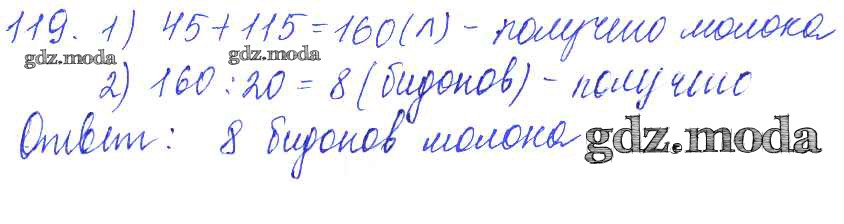 119. 1) 45+115=160(л) - получено молока
gdz.moda gdz.moda
2) 160:20=8(бидонов) - получено
Ответ: 8 бидонов молока gdz.moda